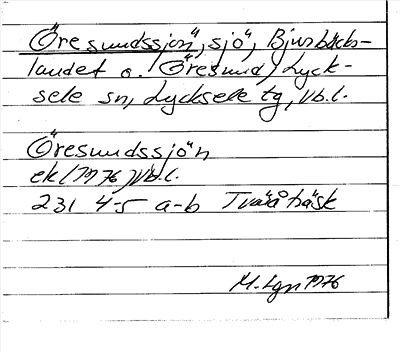 Öresundssjön, sjö, Bjurbäcks-
landet o. Öresund, Lyck-
sele sn, Lycksele tg, Vb.l.
Öresundssjön
ek (1976) Vb.l.
231 4-5 a-b Tväråträsk
M. Lgn 1976